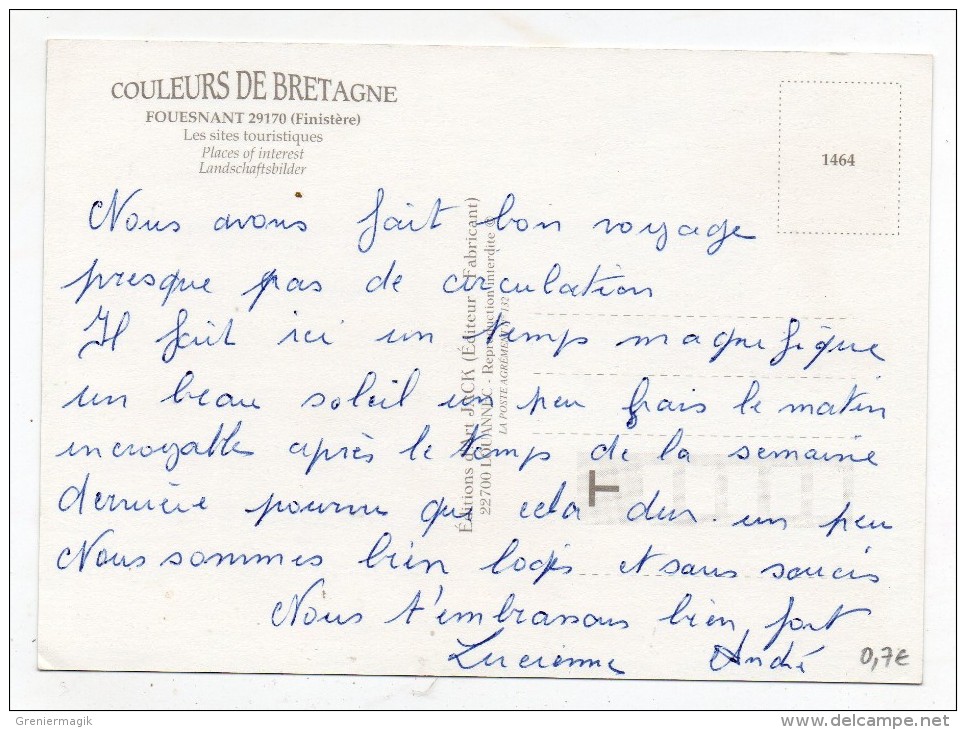 COULEURS DE BRETAGNE
FOUESNANT 29170 (Finistère)
Les sites touristiques
Places of interest
Landschaftsbilder
1464
Nous avons fait bon voyage
presque pas de circulation
Il fait ici un temps magnifique
un beau soleil un peu frais le matin
incroyable après le temps de la semaine
dernière pourvu que cela dure un peu
Nous sommes bien logés et sans soucis
Nous t'embrassons bien fort
Lucienne André
0,7€
Éditions d'Art JACK (Éditeur - Fabricant)
22700 LOUANNEC - Reproduction interdite ©
LA POSTE AGRÉMENT N° 132
T
Greniermagik
www.delcampe.net